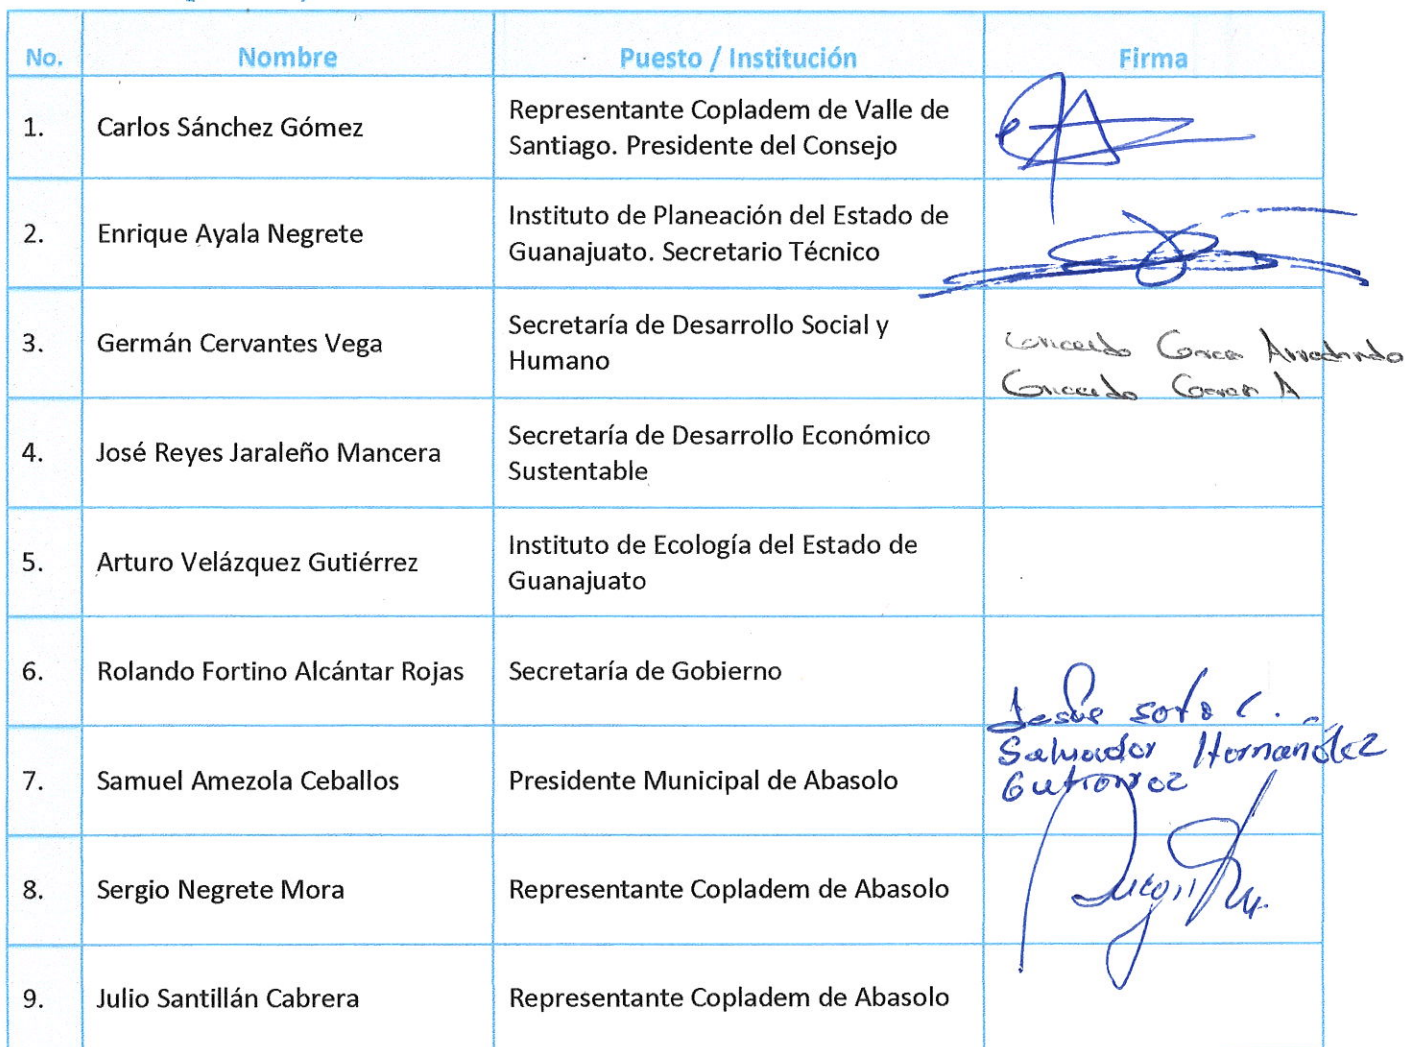 No. Nombre Puesto / Institución Firma
1. Carlos Sánchez Gómez Representante Copladem de Valle de
Santiago. Presidente del Consejo
2. Enrique Ayala Negrete Instituto de Planeación del Estado de
Guanajuato. Secretario Técnico
3. Germán Cervantes Vega Secretaría de Desarrollo Social y
Humano
4. José Reyes Jaraleño Mancera Secretaría de Desarrollo Económico
Sustentable
5. Arturo Velázquez Gutiérrez Instituto de Ecología del Estado de
Guanajuato
6. Rolando Fortino Alcántar Rojas Secretaría de Gobierno
Jesús Soto C.
7. Samuel Amezola Ceballos Presidente Municipal de Abasolo
Salvador Hernández
Gutiérrez
8. Sergio Negrete Mora Representante Copladem de Abasolo
9. Julio Santillán Cabrera Representante Copladem de Abasolo